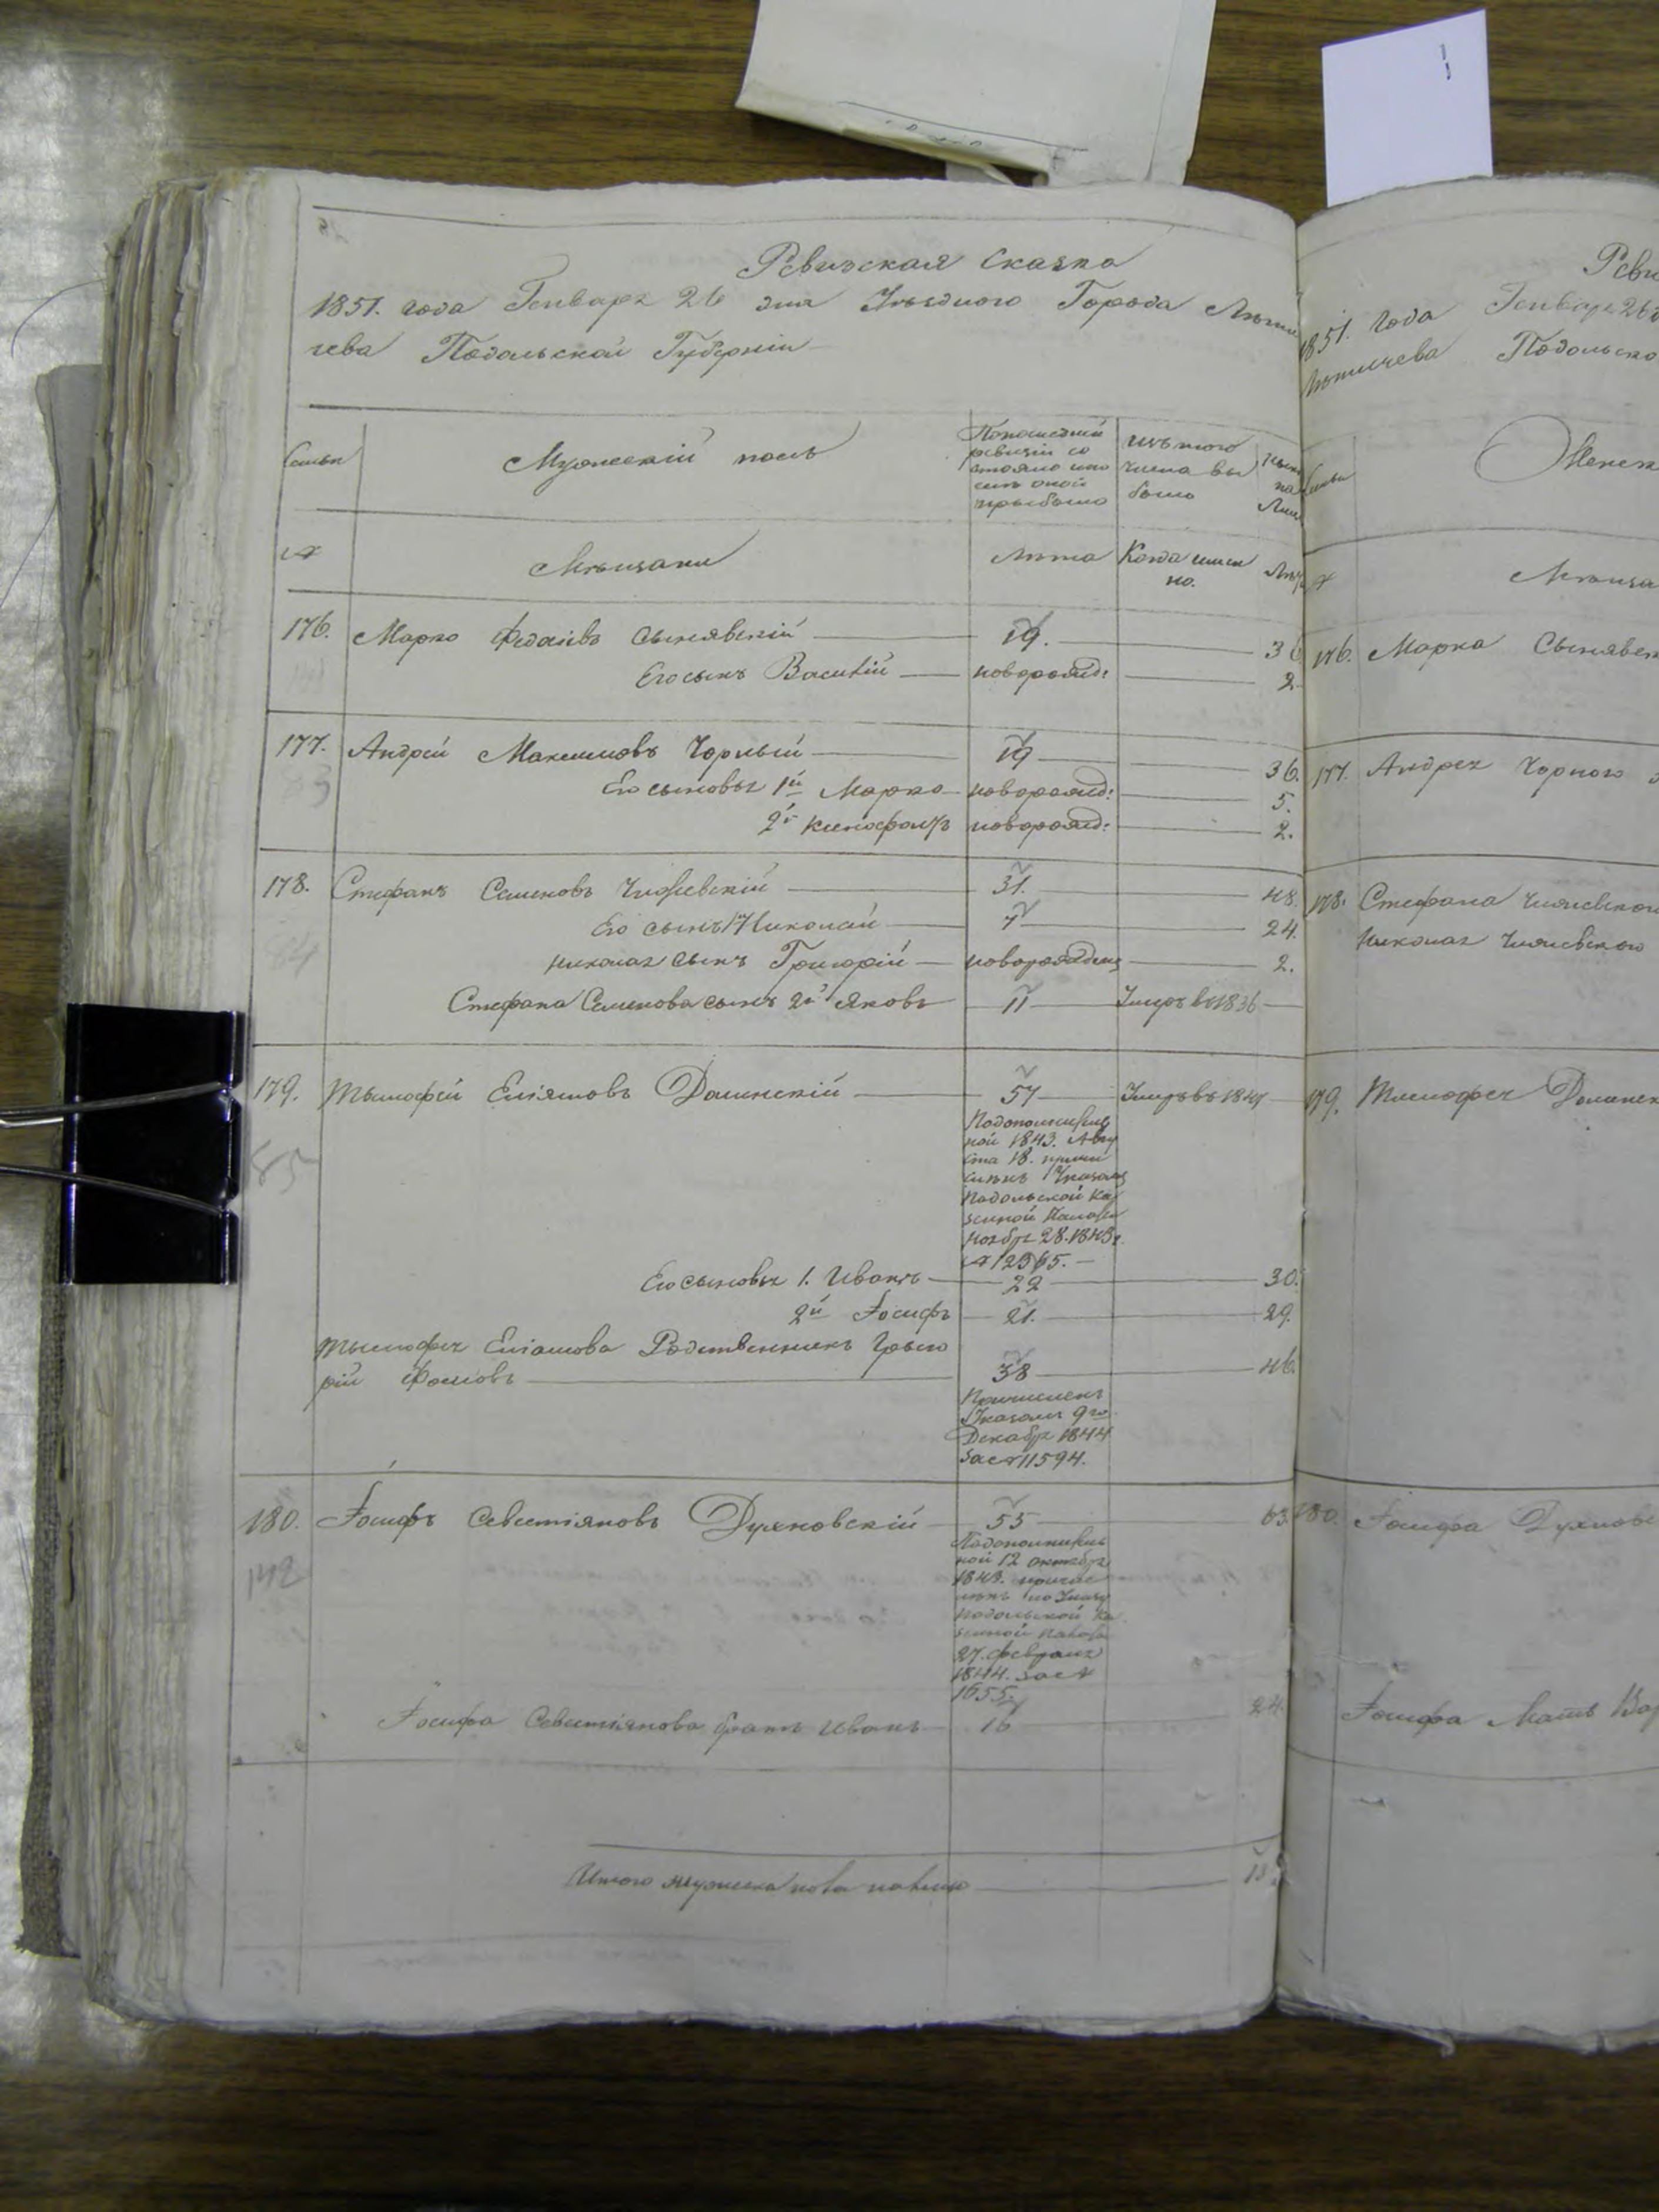 Ревизская Сказка
1851. года Генваря 26 дня Уѣзднаго Города Лѣтичева Подольской Губерніи
Семьи
Мужескій полъ
По последней ревизіи состояло или после оной прыбыло
изъ того числа выбыло
№
Мѣщани
Лѣта
Когда именно.
Лѣта
176. Марко Федаіовъ Сынявскій 19. 36
Его сынъ Василій новорожд: 2.
177. Андрей Максимовъ Чорный 19 36.
Его сыновья 1й Марко новорожд: 5.
2й Ксенофонтъ новорожд: 2.
178. Стефанъ Семеновъ Чижевскій 31. 48.
Его сынъ 1й Николай 7 24.
Николая сынъ Григорій новорожденъ 2.
Стефана Семенова сынъ 2й Яковъ 11 Умеръ въ 1836
179. Тымофей Еліяшовъ Долинскій 57 Умеръ въ 1847
Подополнитель
ной 1843. Авгу
ста 18. причи
сленъ Указомъ
Подольской Ка
зенной Палаты
ноября 28. 1843г.
№ 12365.
Его сыновья 1. Иванъ 22 30.
2й Іосифъ 21. 29.
Тымофея Еліашова Родственникъ Грыго
рій Фоміовъ 38 46.
Причисленъ
Указомъ 9го
Декабря 1844
за № 11594.
180. Іосифъ Севестіяновъ Духновскій 55 63.
Подополнитель
ной 12 октября
1843. причис
ленъ по Указу
Подольской Ка
зенной Палаты
27. февраля
1844. за №
1655.
Іосифа Севестіянова братъ Иванъ 16 24.
Итого мужеска пола налицо 13.
1851. Года Генваря 26
Лѣтичева Подольско
Семьи
Женск
№
Мѣща
176. Марка Сынявск
177. Андрея Чорного
178. Стефана Чижевского
Николая Чижевского
179. Тымофея Долинск
180. Іосифа Духновс
Іосифа Мать Вар